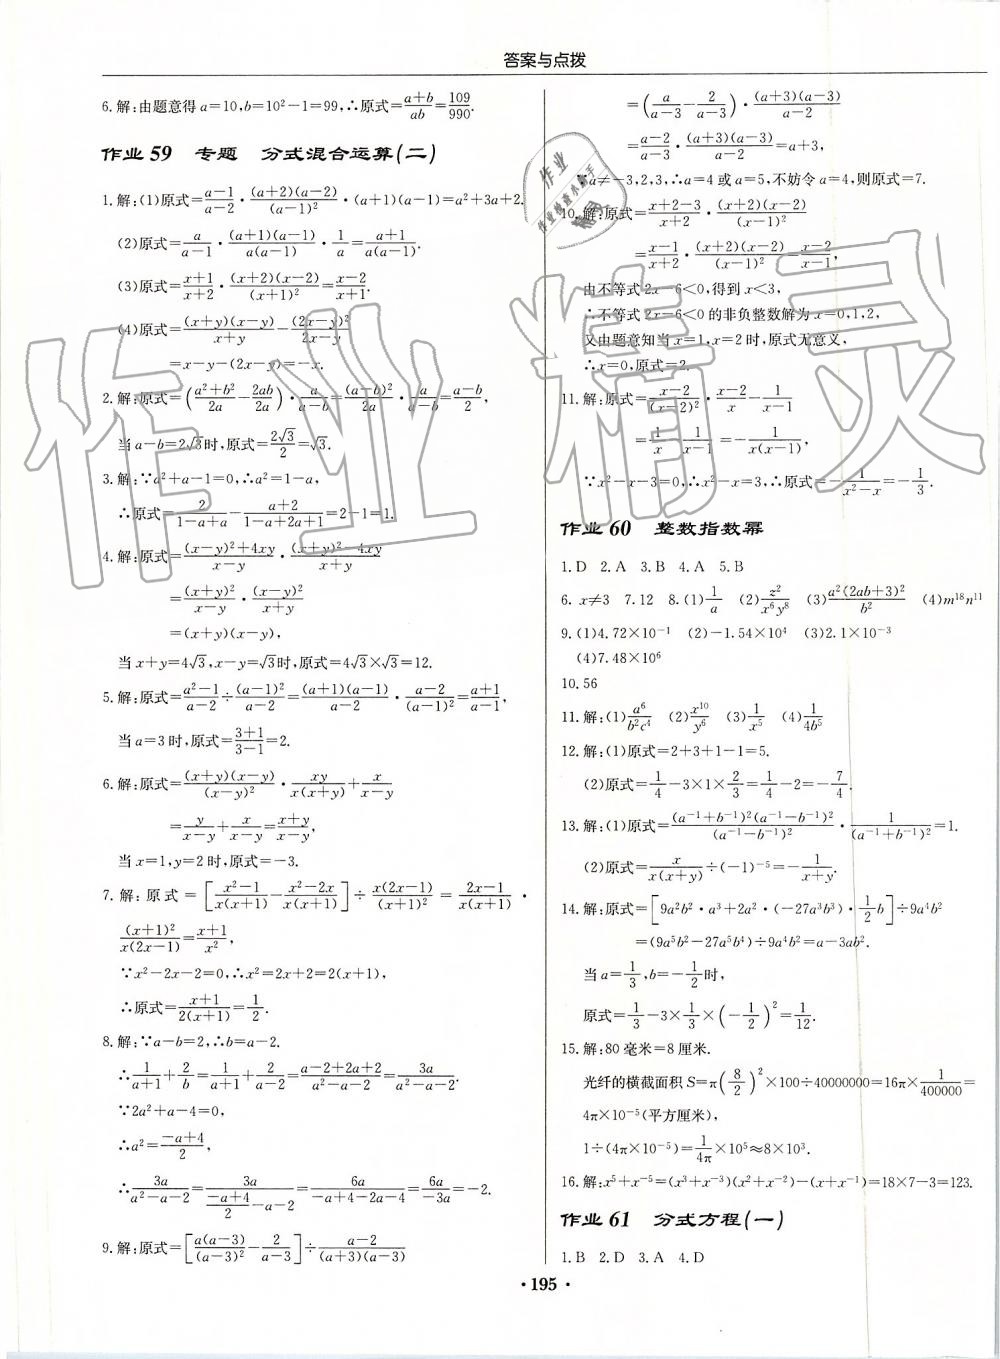 答案与点拨
6.解:由题意得a=10,b=10²-1=99,∴原式=(a+b)/(ab)=109/990.
作业59 专题 分式混合运算(二)
1.解:(1)原式=(a-1)/(a-2)·((a+2)(a-2))/((a-1)²)·(a+1)(a-1)=a²+3a+2.
(2)原式=a/(a-1)·((a+1)(a-1))/(a(a-1))·1/a=(a+1)/(a(a-1)).
(3)原式=(x+1)/(x+2)·((x+2)(x-2))/((x+1)²)=(x-2)/(x+1).
(4)原式=((x+y)(x-y))/(x+y)-((2x-y)²)/(2x-y)
=x-y-(2x-y)=-x.
2.解:原式=((a²+b²)/(2a)-(2ab)/(2a))·a/(a-b)=((a-b)²)/(2a)·a/(a-b)=(a-b)/2,
当a-b=2√3时,原式=(2√3)/2=√3.
3.解:∵a²+a-1=0,∴a²=1-a,
∴原式=2/(1-a+a)-(a+2)/(1-a+2a+1)=2-1=1.
4.解:原式=((x-y)²+4xy)/(x-y)·((x+y)²-4xy)/(x+y)
=((x+y)²)/(x-y)·((x-y)²)/(x+y)
=(x+y)(x-y),
当x+y=4√3,x-y=√3时,原式=4√3×√3=12.
5.解:原式=(a²-1)/(a-2)÷((a-1)²)/(a-2)=((a+1)(a-1))/(a-2)·(a-2)/((a-1)²)=(a+1)/(a-1),
当a=3时,原式=(3+1)/(3-1)=2.
6.解:原式=((x+y)(x-y))/((x-y)²)·(xy)/(x(x+y))+x/(x-y)
=y/(x-y)+x/(x-y)=(x+y)/(x-y),
当x=1,y=2时,原式=-3.
7.解:原式=[(x²-1)/(x(x+1))-(x²-2x)/(x(x+1))]÷(x(2x-1))/((x+1)²)=(2x-1)/(x(x+1))·
((x+1)²)/(x(2x-1))=(x+1)/(x²),
∵x²-2x-2=0,∴x²=2x+2=2(x+1),
∴原式=(x+1)/(2(x+1))=1/2.
8.解:∵a-b=2,∴b=a-2.
∴1/(a+1)+2/b=1/(a+1)+2/(a-2)=(a-2+2a+2)/(a²-a-2)=(3a)/(a²-a-2).
∵2a²+a-4=0,
∴a²=(-a+4)/2,
∴(3a)/(a²-a-2)=(3a)/((-a+4)/2-a-2)=(6a)/(-a+4-2a-4)=(6a)/(-3a)=-2.
9.解:原式=[(a(a-3))/((a-3)²)-2/(a-3)]÷(a-2)/((a+3)(a-3))
=(a/(a-3)-2/(a-3))·((a+3)(a-3))/(a-2)
=(a-2)/(a-3)·((a+3)(a-3))/(a-2)=a+3,
∵a≠-3,2,3,∴a=4或a=5,不妨令a=4,则原式=7.
10.解:原式=(x+2-3)/(x+2)·((x+2)(x-2))/((x-1)²)
=(x-1)/(x+2)·((x+2)(x-2))/((x-1)²)=(x-2)/(x-1),
由不等式2x-6<0,得到x<3,
∴不等式2x-6<0的非负整数解为x=0,1,2,
又由题意知当x=1,x=2时,原式无意义,
∴x=0,原式=2.
11.解:原式=(x-2)/((x-2)²)·(x-2)/x-1/(x-1)
=1/x-1/(x-1)=-1/(x(x-1)),
∵x²-x-3=0,∴x²-x=3,∴原式=-1/(x²-x)=-1/3.
作业60 整数指数幂
1.D 2.A 3.B 4.A 5.B
6. x≠3 7.12 8.(1)1/a (2)z²/(x⁶y⁸) (3)(a²(2ab+3)²)/b² (4)m¹⁸n¹¹
9.(1)4.72×10⁻¹ (2)-1.54×10⁴ (3)2.1×10⁻³
(4)7.48×10⁶
10.56
11.解:(1)a⁶/(b²c⁴) (2)x¹⁰/y⁶ (3)1/x⁵ (4)1/(4b⁵)
12.解:(1)原式=2+3+1-1=5.
(2)原式=1/4-3×1×2/3=1/4-2=-7/4.
13.解:(1)原式=((a⁻¹+b⁻¹)²(a⁻¹-b⁻¹)²)/((a⁻¹-b⁻¹)²)·1/((a⁻¹+b⁻¹)²)=1.
(2)原式=x/(x(x+y))÷(-1)⁻⁵=-1/(x+y).
14.解:原式=[9a²b²·a³+2a²·(-27a³b³)·1/2b]÷9a⁴b²
=(9a⁵b²-27a⁵b⁴)÷9a⁴b²=a-3ab².
当a=1/3,b=-1/2时,
原式=1/3-3×1/3×(-1/2)²=1/12.
15.解:80毫米=8厘米.
光纤的横截面积S=π(8/2)²×100÷40000000=16π×1/400000=
4π×10⁻⁵(平方厘米),
1÷(4π×10⁻⁵)=1/(4π)×10⁵≈8×10³.
16.解:x⁵+x⁻⁵=(x³+x⁻³)(x²+x⁻²)-(x+x⁻¹)=18×7-3=123.
作业61 分式方程(一)
1.B 2.D 3.A 4.D
·195·
作业精灵